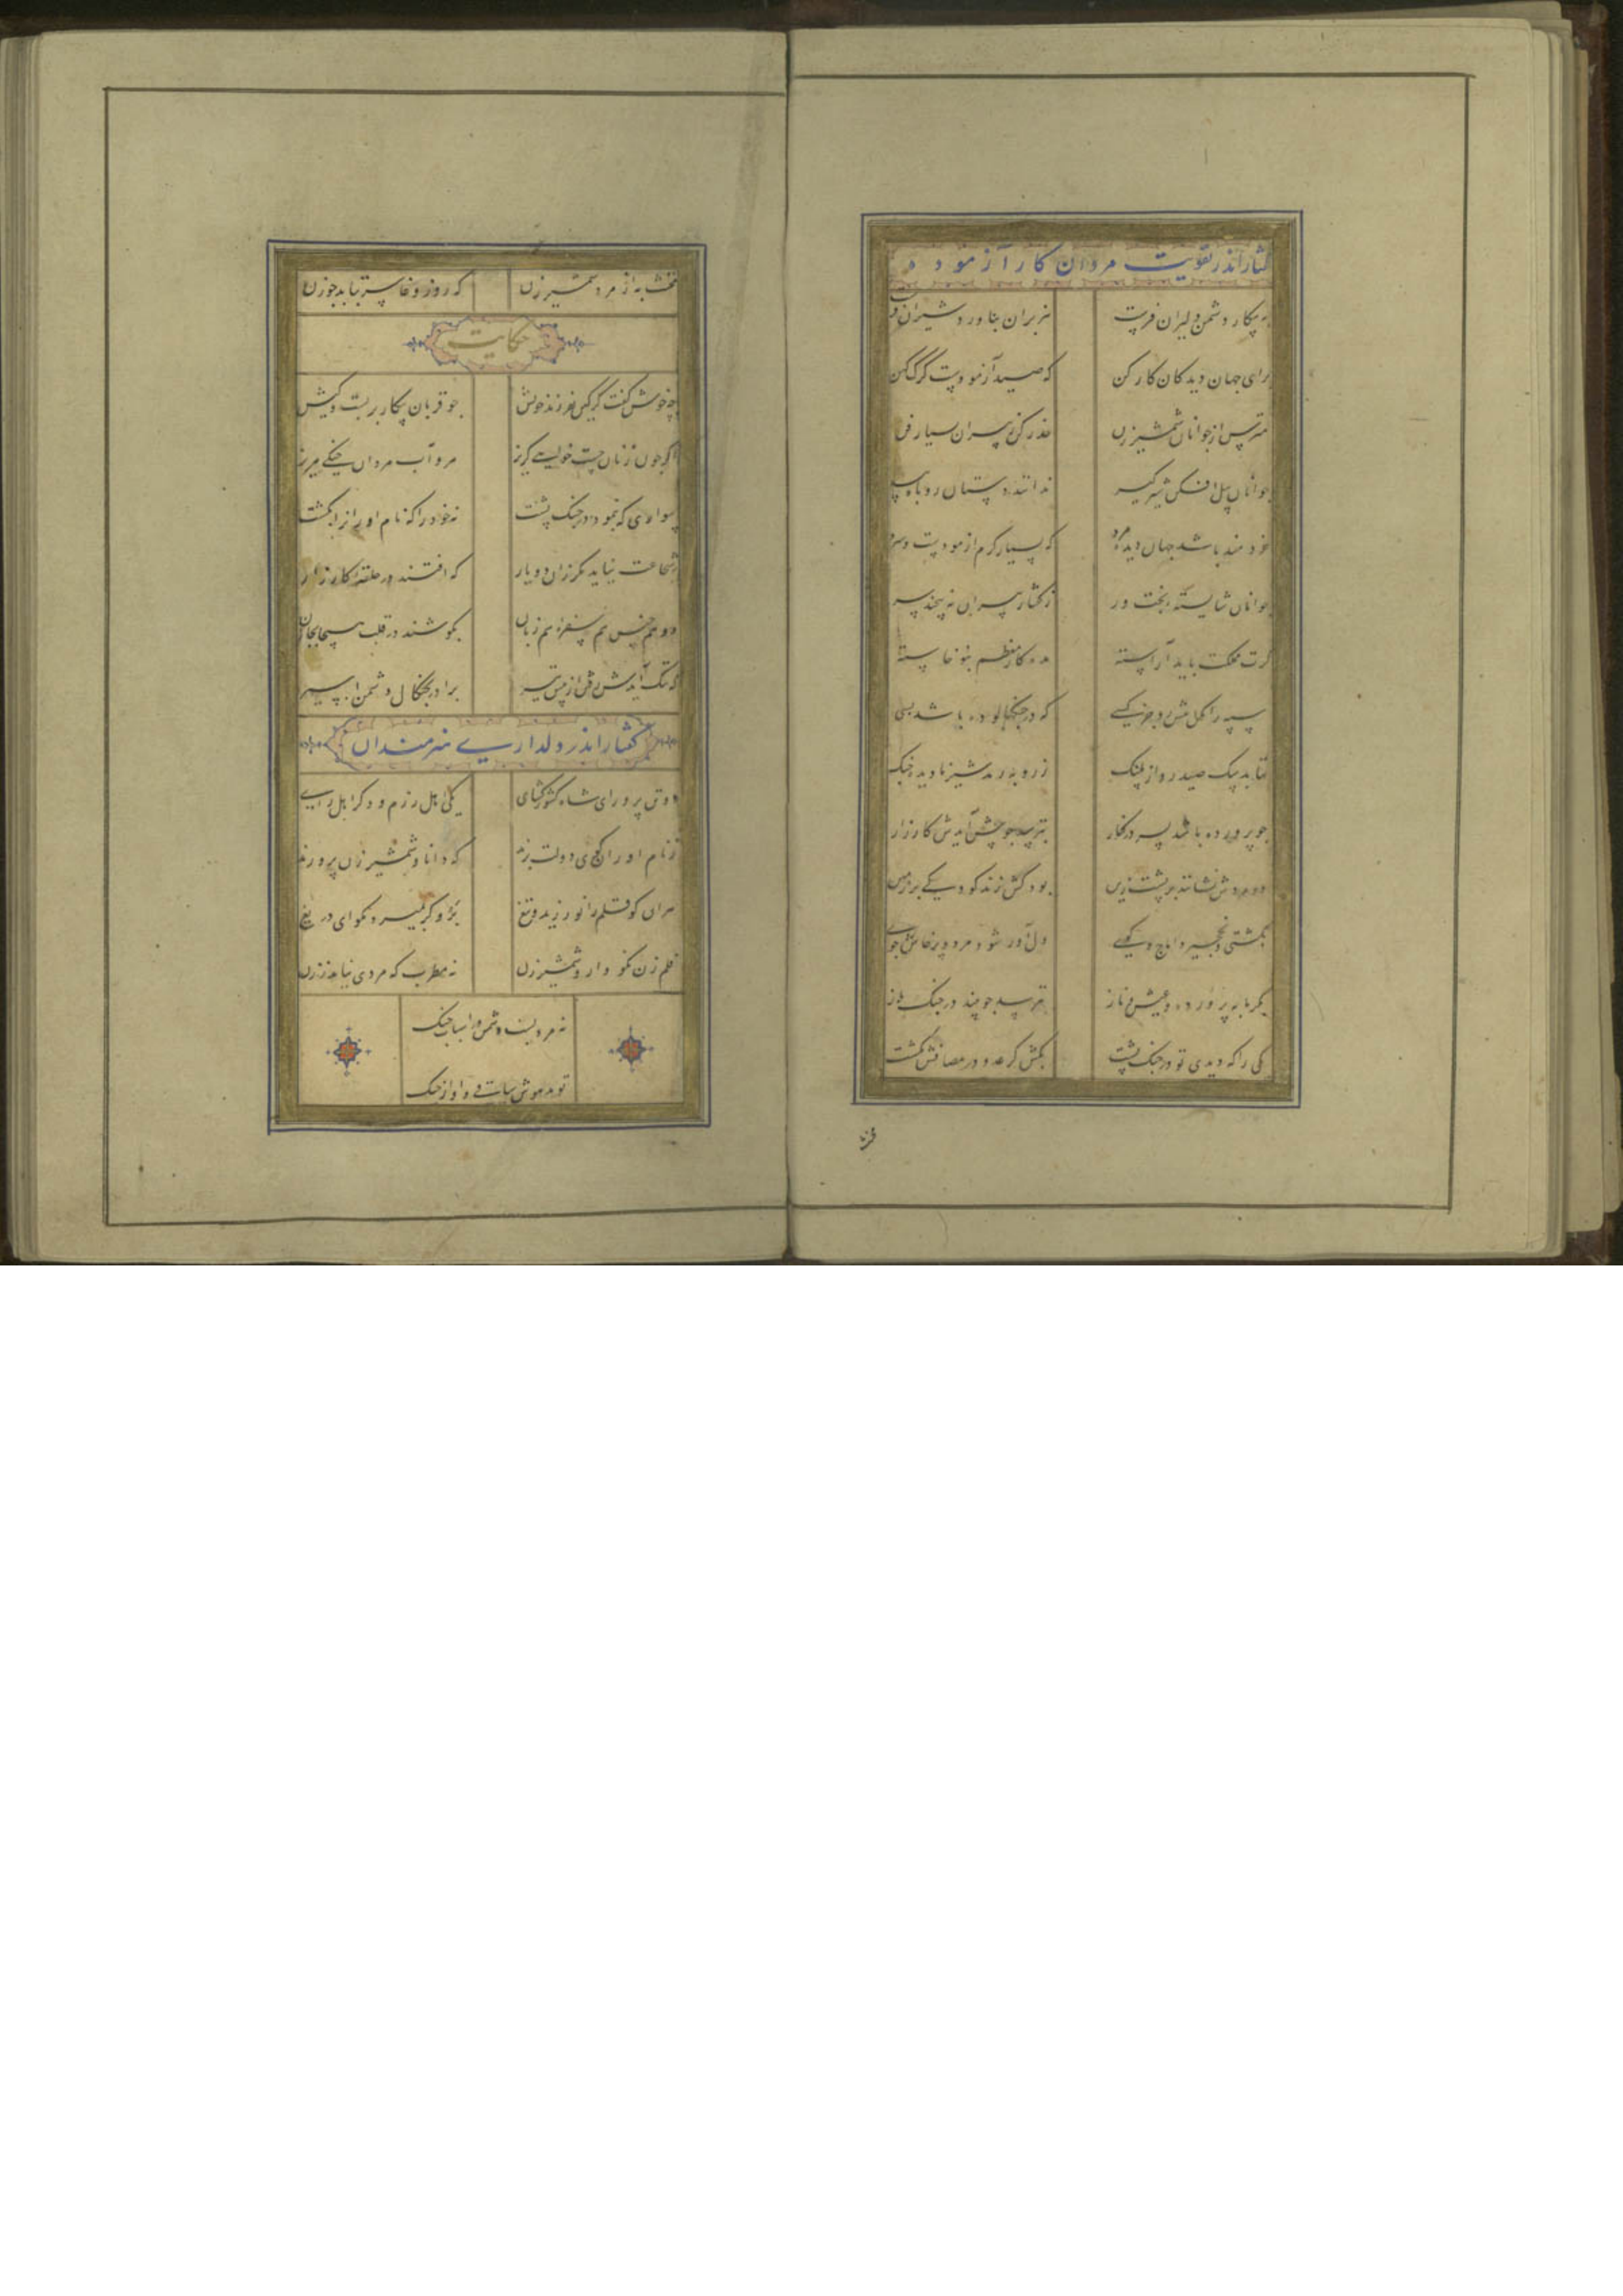 گفتار اندر تقویت مردان کار آزموده
به پیکار دشمن دلیران فرست هزبران بناورد شیران فرست
برای جهان دیدکان کار کن که صید آزمودست کرک کهن
مترس از جوانان شمشیر زن حذر کن ز پیران بسیار فن
جوانان پیل افکن شیر کیر ندانند دستان روباه پیر
خردمند باشد جهان دیده مرد که بسیار کرم آزمودست و سرد
جوانان شایسته بخت ور ز کفتار پیران نه پیچند سر
کرت مملکت باید آراسته مده کار معظم بنوخاسته
سپه را مکن پیش رو جز کسی که در جنکها بوده باشد بسی
نتابد سک صید رو از پلنک ز روبه رمد شیر نادیده جنک
جو پرورده باشد پسر در شکار نترسد جو پیش آیدش کارزار
دو مردش نشانند بر پشت زین بود کش زند کودکی بر زمین
بکشتی و نخجیر و اماج و کوی دلاور شود مرد پرخاش جوی
بکرمابه پرورده و عیش و ناز بترسد جو بیند در جنک باز
یکی را که دیدی تو در جنک پشت بکش کر عدو در مصافش نکشت
مخنث
مخنث به از مرد شمشیر زن که روز وغا سر بتابد جو زن
حکایت
چه خوش کفت کرکین بفرزند خویش جو قربان پیکار بر بست و کیش
اکر جون زنان جست خواهی کریز مرو آب مردان جنکی مریز
سواری که بنمود در جنک پشت نه خود را که نام اوران را بکشت
شجاعت نیاید مکر زان دو یار که افتند در حلقه کارزار
دو هم جنس هم سفره هم زبان بکوشند در قلب هیجا بجان
که ننک آیدش رفتن از پیش تیر برادر بجنکال دشمن اسیر
کفتار اندر دلداری هنرمندان
دو تن پرور ای شاه کشور کشای یکی اهل رزم و دکر اهل رای
ز نام اوران کوی دولت برند که دانا و شمشیر زن پرورند
هران کو قلم را نورزید و تیغ برو کر بمیرد مکو ای دریغ
قلم زن نکو دار و شمشیر زن نه مطرب که مردی نیاید ز زن
نه مردیست دشمن در اسباب جنک
تو مدهوش ساقی و اواز جنک